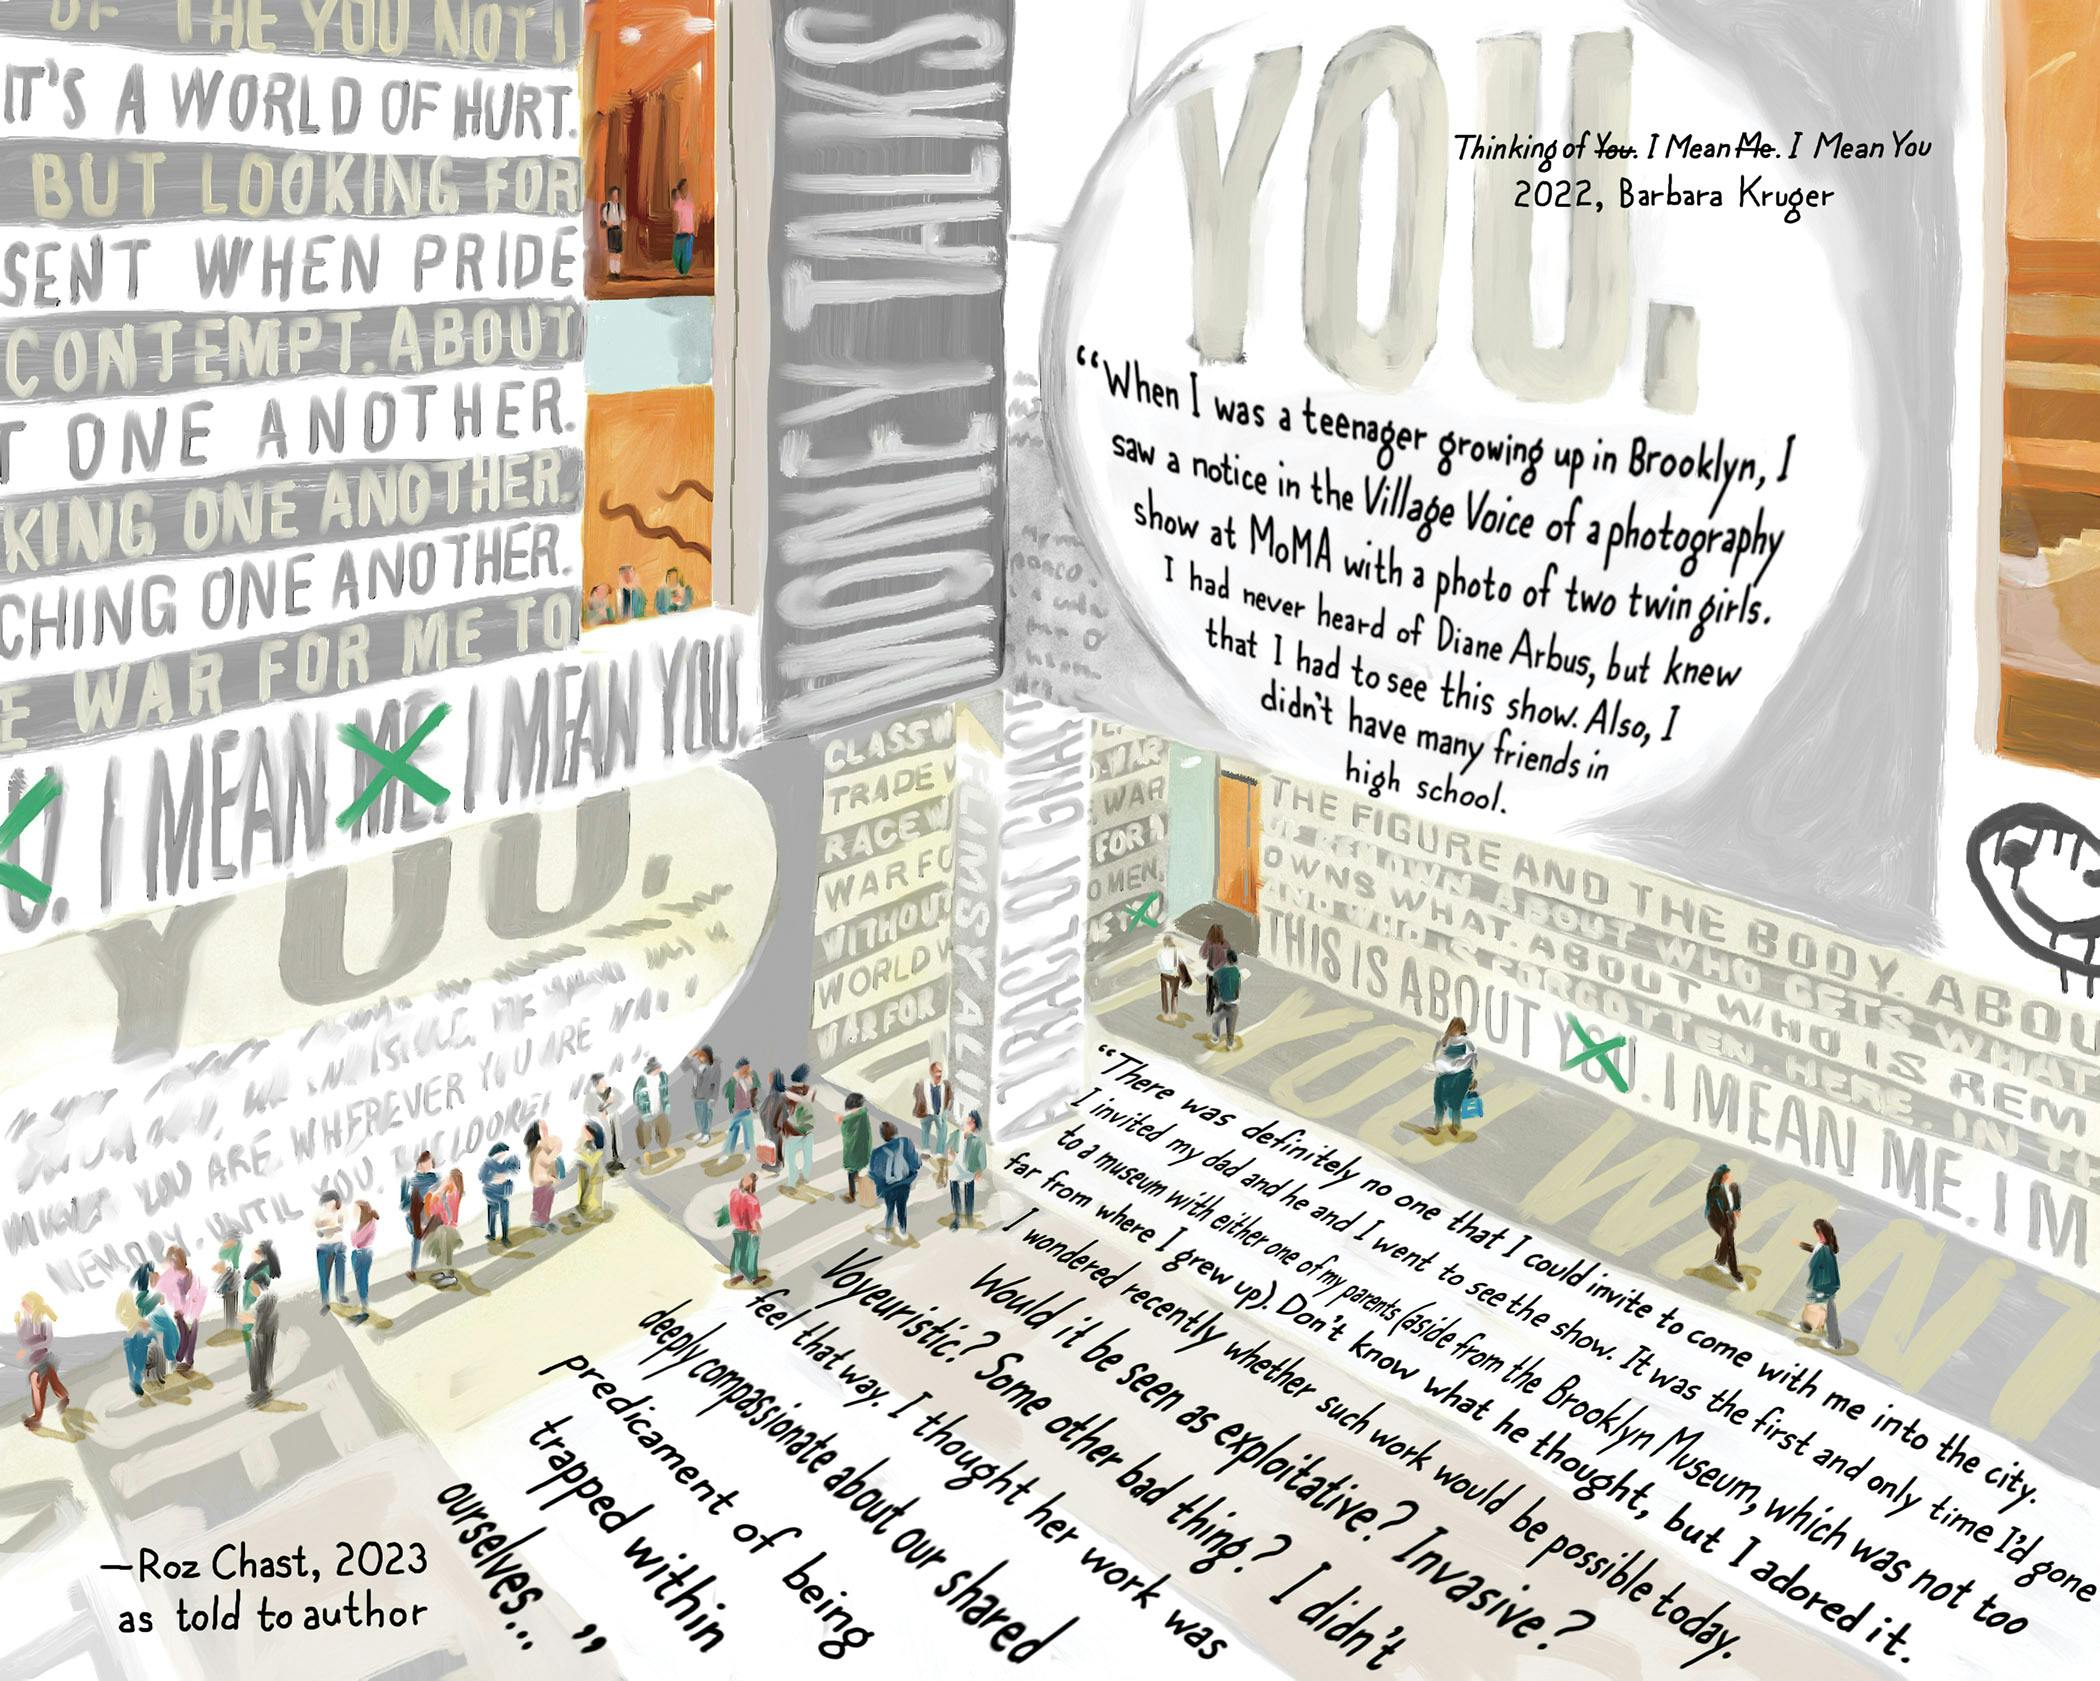 OF THE YOU NOT I
IT'S A WORLD OF HURT.
BUT LOOKING FOR
SENT WHEN PRIDE
CONTEMPT. ABOUT
T ONE ANOTHER.
KING ONE ANOTHER.
CHING ONE ANOTHER.
E WAR FOR ME TO
U. I MEAN ME. I MEAN YOU.
YOU.
YOU ARE. WHEREVER YOU ARE
MEMORY. UNTIL YOU.
MONEY TALKS
CLASS W
TRADE W
RACE W
WAR FO
WITHOUT
WORLD W
WAR FOR
WAR
FOR A
OMEN.
YOU.
Thinking of You. I Mean Me. I Mean You
2022, Barbara Kruger
“When I was a teenager growing up in Brooklyn, I
saw a notice in the Village Voice of a photography
show at MoMA with a photo of two twin girls.
I had never heard of Diane Arbus, but knew
that I had to see this show. Also, I
didn't have many friends in
high school.
THE FIGURE AND THE BODY. ABOU
OWNS WHAT. ABOUT WHO IS REM
AND WHO IS FORGOTTEN. HERE. IN TH
THIS IS ABOUT YOU. I MEAN ME. I M
YOU WANT
“There was definitely no one that I could invite to come with me into the city.
I invited my dad and he and I went to see the show. It was the first and only time I'd gone
to a museum with either one of my parents (aside from the Brooklyn Museum, which was not too
far from where I grew up). Don't know what he thought, but I adored it.
I wondered recently whether such work would be possible today.
Would it be seen as exploitative? Invasive?
Voyeuristic? Some other bad thing? I didn't
feel that way. I thought her work was
deeply compassionate about our shared
predicament of being
trapped within
ourselves...”
—Roz Chast, 2023
as told to author